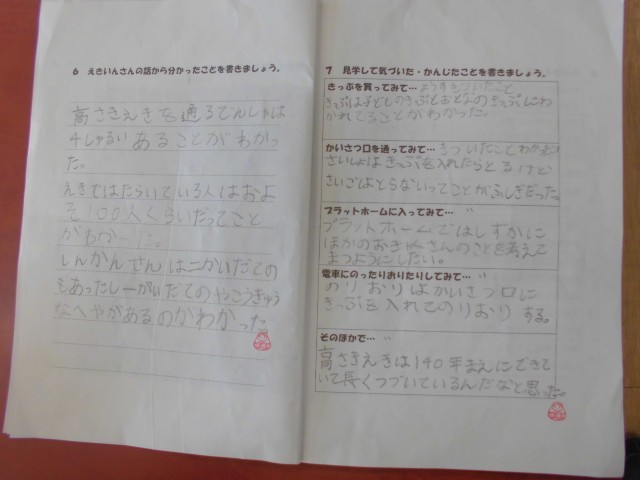 6 えきいんさんの話から分かったことを書きましょう。
高さきえきを通るでんしゃは
4しゃるいあることがわかっ
た。
えきではたらいている人はおよ
そ100人くらいだってこと
がわかった。
しんかんせんは二かいだての
もあったし一かいだてのやこうきゅう
なへやがあるのがわかった
7 見学して気づいた・かんじたことを書きましょう。
きっぷを買ってみて…ようすきづいたこと
きっぷは子どものきっぷとおとなのきっぷにわ
かれてることがわかった。
かいさつ口を通ってみて…きづいたこと
さいしょはきっぷを入れたらとるけど
さいごはとらないってことがふしぎだった。
プラットホームに入ってみて…
プラットホームではしずかに
ほかのおきゃくさんのことを考えて
まつようにしたい。
電車にのったりおりたりしてみて…
のりおりはかいさつ口に
きっぷを入れてのりおりする。
そのほかで…
高さきえきは140年まえにできて
いて長くつづいているんだなと思った。